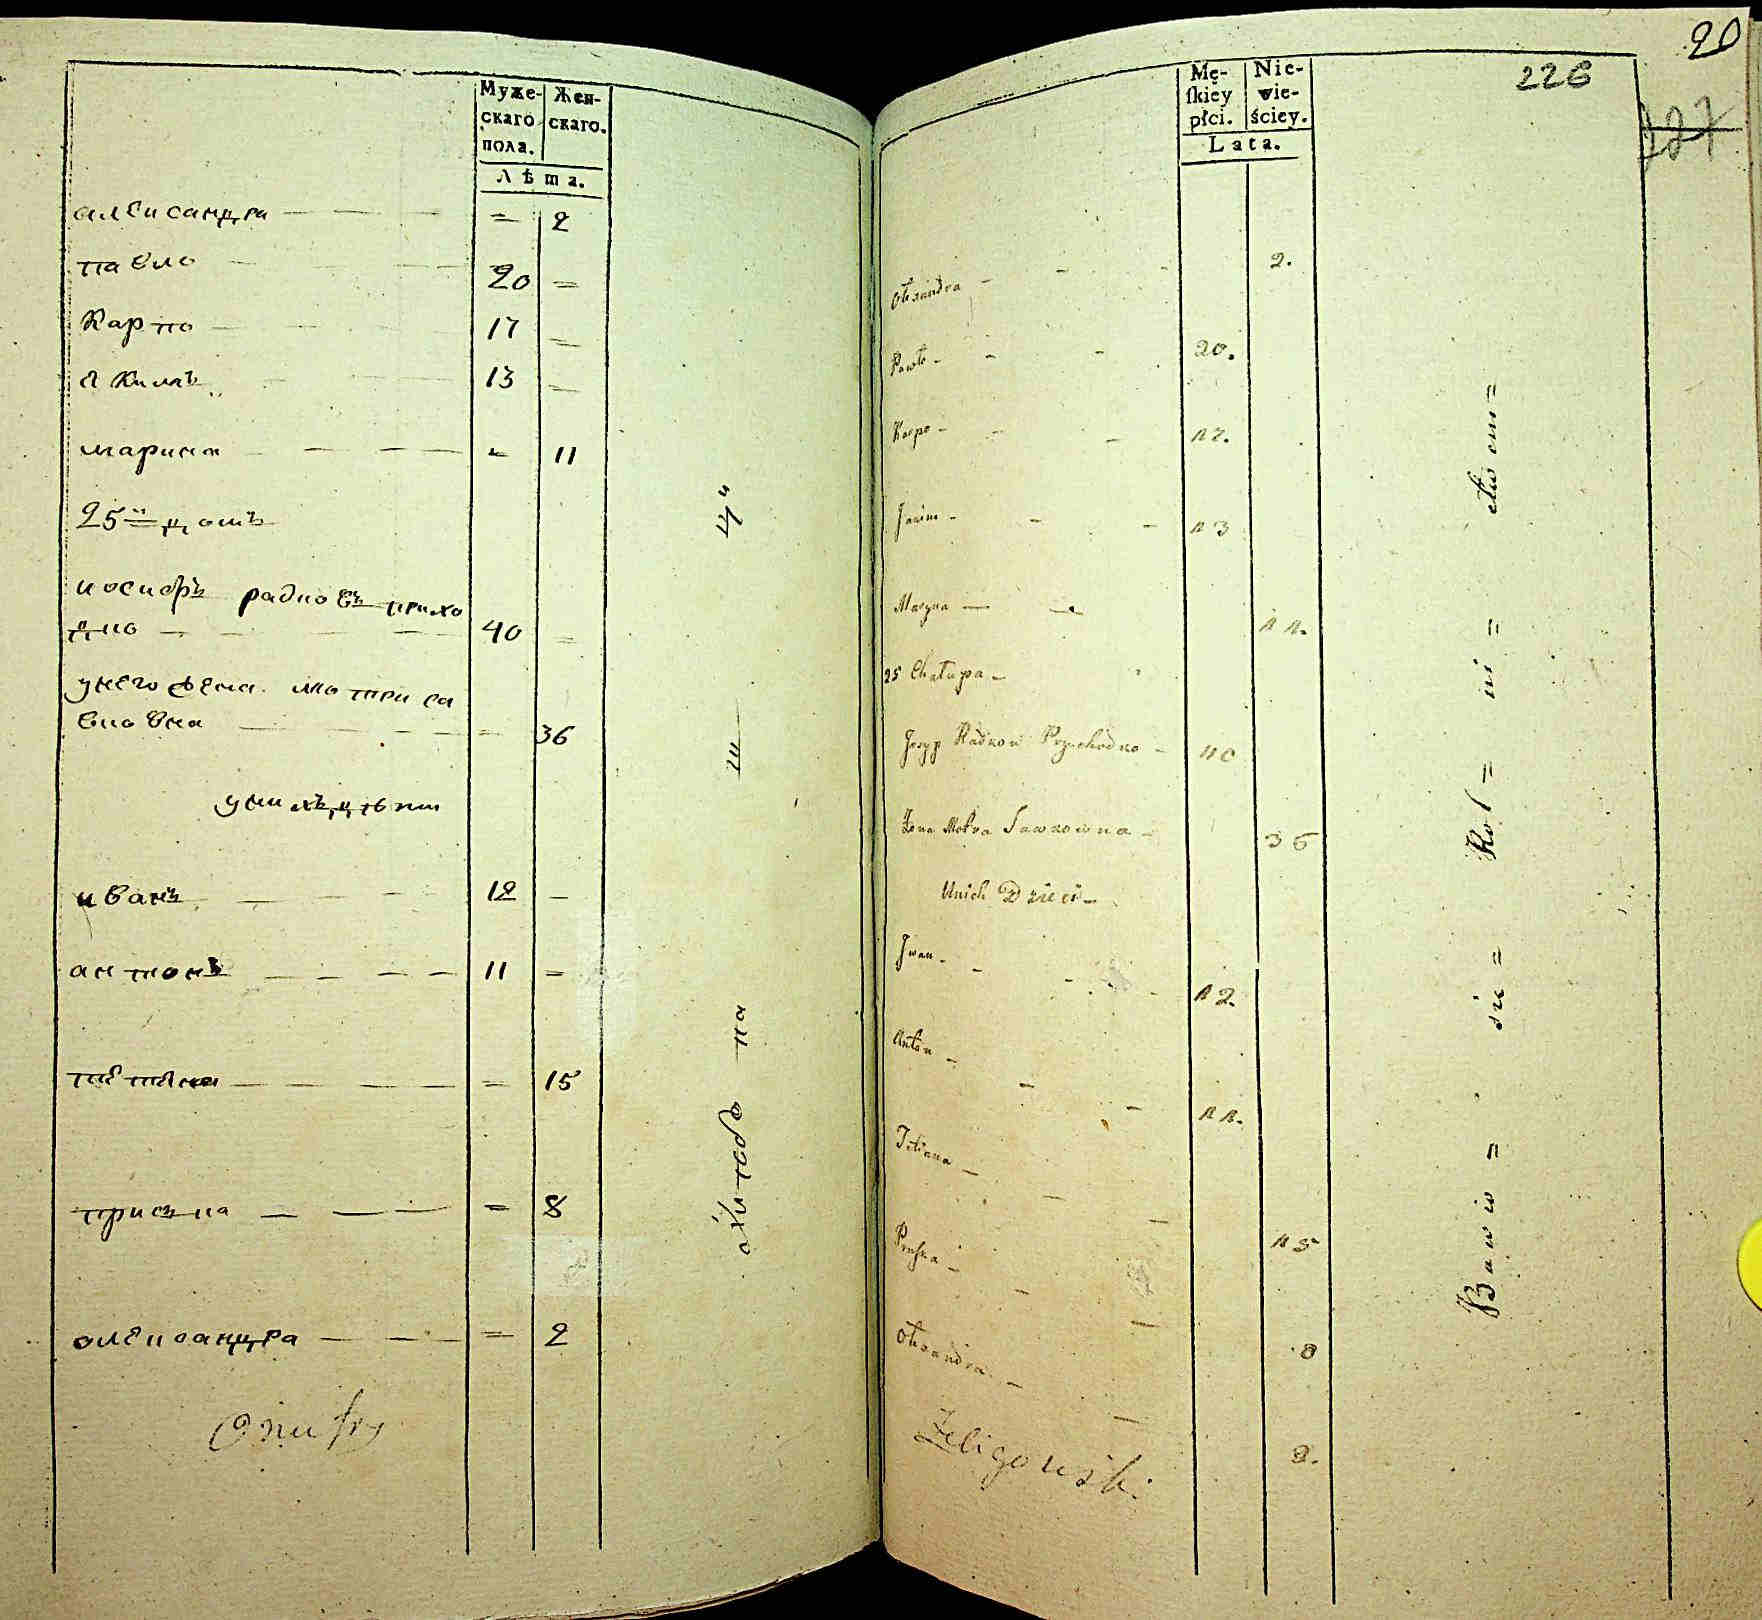 Муже-
скаго
пола.
Жен-
скаго.
Лѣта.
александра — — — = 2
павло — — — 20 =
Карпо — — — 17 =
якимъ — — 13 =
марина — — — = 11
25й домъ
иосифъ радковъ прихо
дко — — — 40 =
унего жена мотря са
вковна — — — 36
унихъ дѣти
иванъ — — — 12 —
антонъ — — — 11 =
тетяна — — — = 15
приська — — — = 8
олександра — — — = 2
Onufry
20
226
127
Mę-
ſkiey
płci.
Nie-
wie-
ściey.
Lata.
Olexandra — — — 2.
Pawło — — — 20.
Karpo — — — 17.
Jakim — — — 13
Maryna — — 11.
25 Chałupa —
Josyp Radkow Prychodko — 40
Żona Motra Sawkowna — 36
Unich Dzieci —
Iwan — — — 12.
Anton — — — 11.
Tetiana — — — 15
Pryśka — — — 8
Olexandra — — — 2.
Żeligowski.